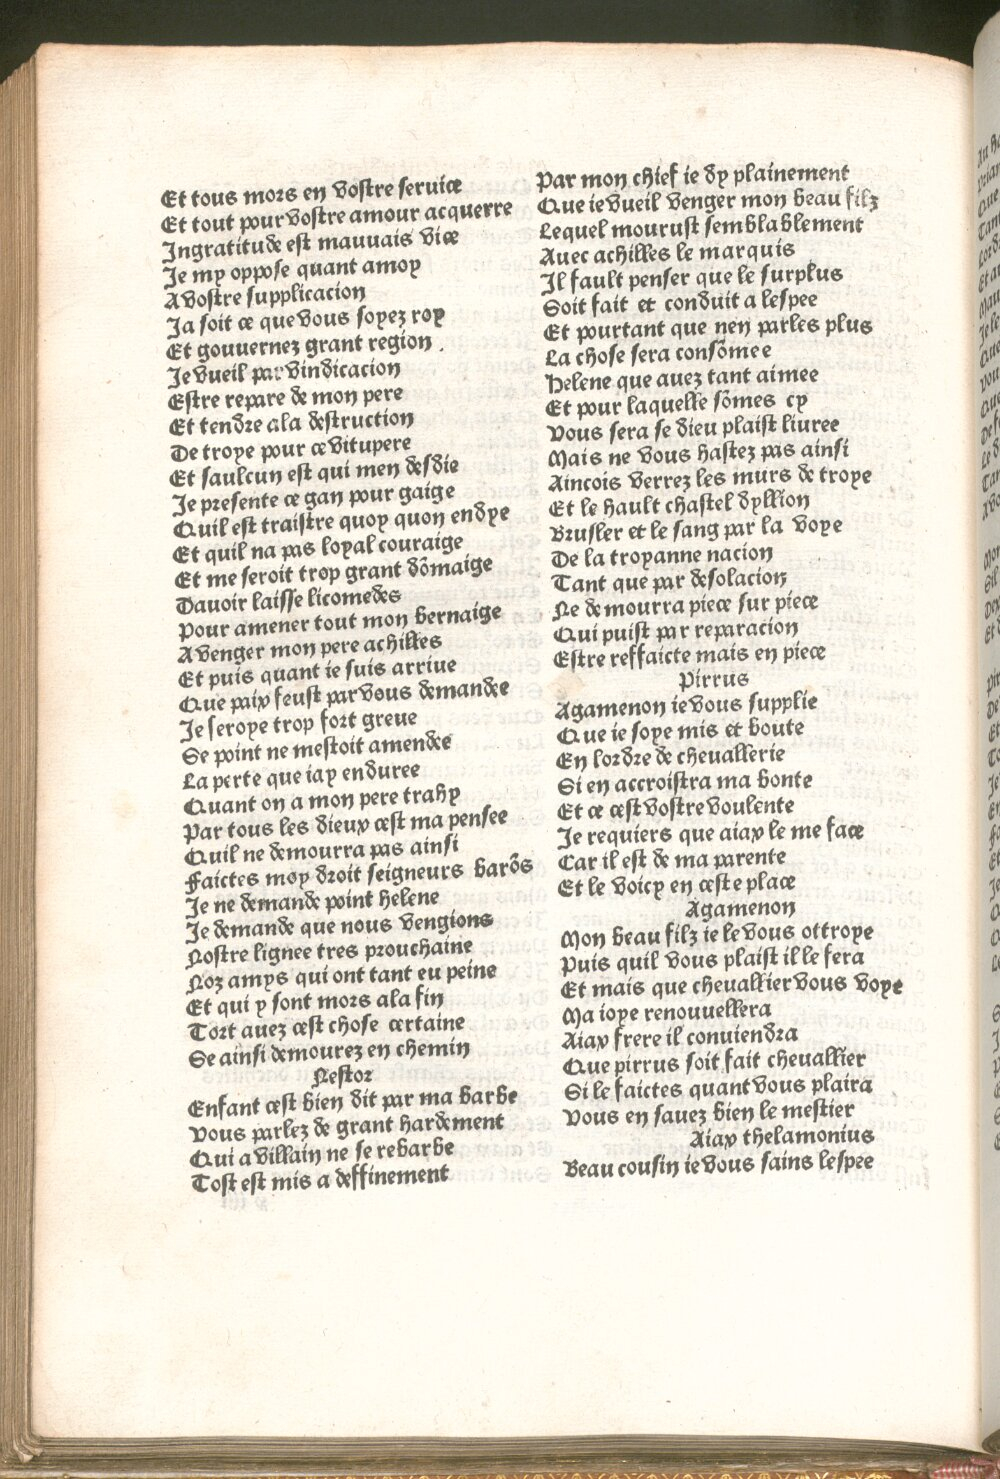 Et tous mors en vostre seruice
Et tout pour vostre amour acquerre
Ingratitude est mauuais vice
Je my oppose quant amoy
A vostre supplicacion
Ja soit ce que vous soyez roy
Et gouuernez grant region .
Je vueil par vindicacion
Estre repare de mon pere
Et tendre ala destruction
De troye pour ce vitupere
Et saulcun est qui men desdie
Je presente ce gan pour gaige
Quil est traistre quoy quon endye
Et quil na pas loyal couraige
Et me seroit trop grant dõmaige
Dauoir laisse licomedes
Pour amener tout mon bernaige
A venger mon pere achilles
Et puis quant ie suis arriue
Que paix feust par vous demandee
Je seroye trop fort greue
Se point ne mestoit amendee
La perte que iay enduree
Quant on a mon pere trahy
Par tous les dieux cest ma pensee
Quil ne demourra pas ainsi
Faictes moy droit seigneurs barõs
Je ne demande point helene
Je demande que nous vengions
Nostre lignee tres prouchaine
Noz amys qui ont tant eu peine
Et qui y sont mors ala fin
Tort auez cest chose certaine
Se ainsi demourez en chemin
Nestor
Enfant cest bien dit par ma barbe
Vous parlez de grant hardement
Qui a villain ne se rebarbe
Tost est mis a deffinement
Par mon chief ie dy plainement
Que ie vueil venger mon beau filz
Lequel mourust semblablement
Auec achilles le marquis
Il fault penser que le surplus
Soit fait et conduit a lespee
Et pourtant que nen parles plus
La chose sera consõmee
Helene que auez tant aimee
Et pour laquelle sõmes cy
Vous sera se dieu plaist liuree
Mais ne vous hastez pas ainsi
Aincois verrez les murs de troye
Et le hault chastel dyllion
Brusler et le sang par la voye
De la troyanne nacion
Tant que par desolacion
Ne demourra piece sur piece
Qui puist par reparacion
Estre reffaicte mais en piece
Pirrus
Agamenon ie vous supplie
Que ie soye mis et boute
En lordre de cheuallerie
Si en accroistra ma bonte
Et ce cest vostre voulente
Je requiers que aiax le me face
Car il est de ma parente
Et le voicy en ceste place
Agamenon
Mon beau filz ie le vous ottroye
Puis quil vous plaist il le fera
Et mais que cheuallier vous voye
Ma ioye renouuellera
Aiax frere il conuiendra
Que pirrus soit fait cheuallier
Si le faictes quant vous plaira
Vous en sauez bien le mestier
Aiax thelamonius
Beau cousin ie vous sains lespee